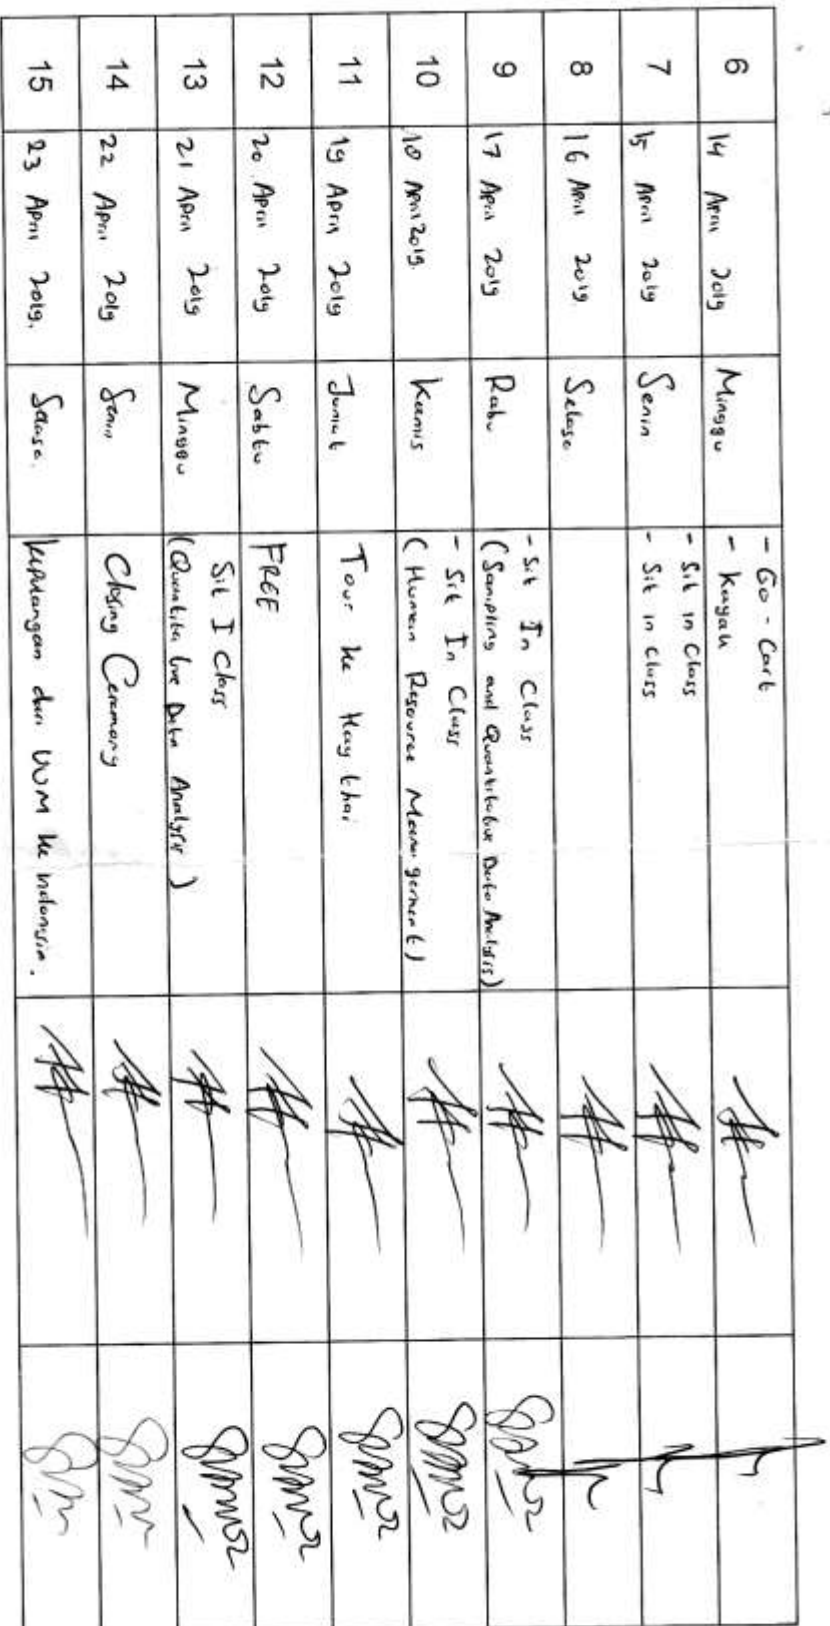 6 14 April 2019 Minggu - Go - Cart
- Kayak
7 15 April 2019 Senin - Sit in Class
- Sit in Class
8 16 April 2019 Selasa
9 17 April 2019 Rabu - Sit In Class
(Sampling and Quantitative Data Analysis)
10 18 April 2019. Kamis - Sit In Class
(Human Resource Management)
11 19 April 2019 Jumat Tour ke Hay thai
12 20 April 2019 Sabtu FREE
13 21 April 2019 Minggu Sit I Class
(Quantitative Data Analysis)
14 22 April 2019 Senin Closing Ceremony
15 23 April 2019. Selasa. kepulangan dari UUM ke indonesia.